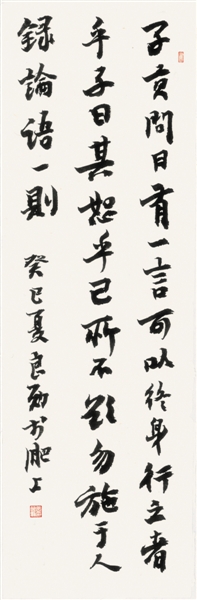 子贡問曰有一言可以终身行之者
乎子曰其恕乎己所不欲勿施于人
録論语一则
癸巳夏良勋书肥上